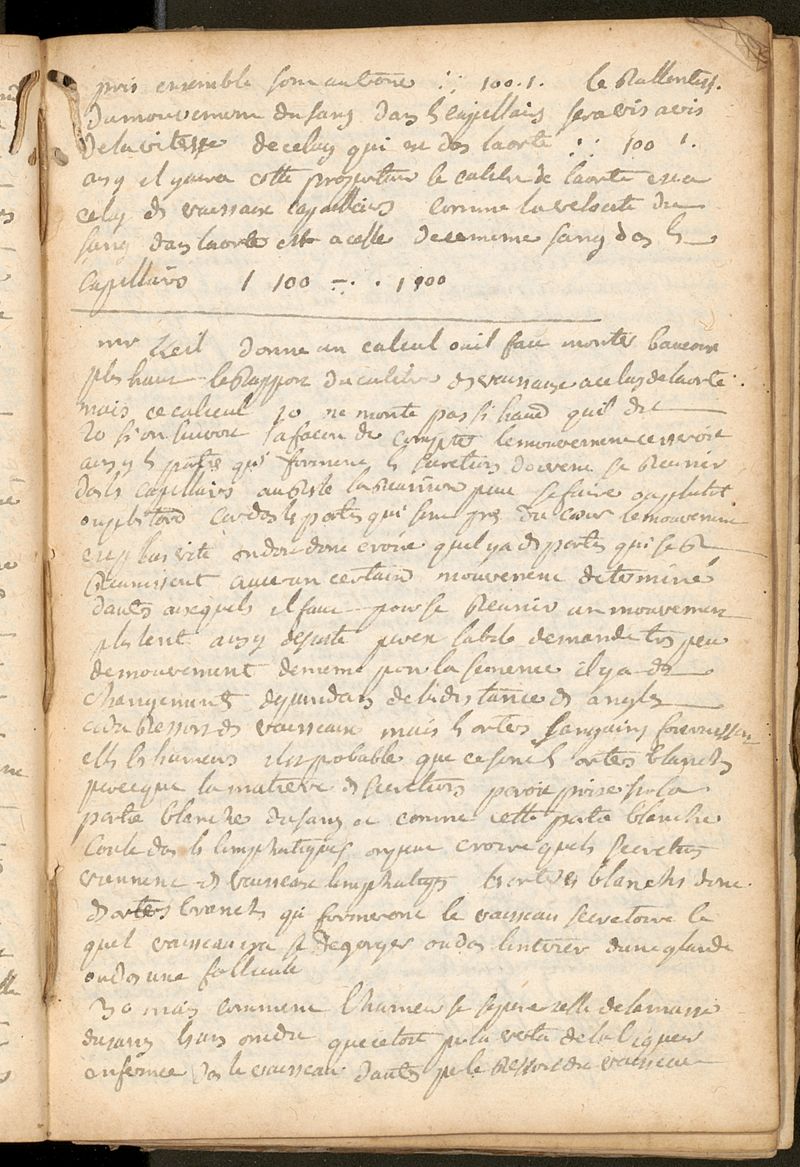 pris ensemble sont au tronc :: 100 . 1. le Rallentiss.
Du mouvement du sang dans ls capillairs sera vis avis
de la vitesse de celuy qui est ds laorte :: 100 1.
ainsy il y aura cette proportion le calibre de laorte est a
celuy ds vaisseaux capillairs comme la velocité du
sang dans laorte est a celle de ce meme sang ds ls
capillairs 1 100 1 100
mr Keil donne un calcul ou il fait monter baucoup
plus haut le Rapport du calibre ds vaisseaux a celuy de laorte.
mais ce calcul 1o ne monte pas si haut quil dit
2o si on suivoit sa facon de compter le mouvement cesseroit
ainsy ls partis qui forment ls secretions doivent se Reunir
dans ls capillairs au Reste la Reunion peut se faire ou plutôt
ou plus tard car ds ls partis qui sont pres du cœur le mouvement
est plus vite on doit donc croire quil y a ds partis qui se R
Reunissent avec un certain mouvement determiné
dautrs ausquels il faut pour se Reunir un mouvement
plus lent ainsy la bile demande tres peu
de mouvement de meme pour la semence il y a ds
changements dependans de la distance ds angles
et du Ressort ds vaisseaux mais ls arters sanguins fournissent
ells ls humeurs il est probable que ce sont ls arters blanchs
parceque la matiere ds secretions paroit prise sur la
partie blanche du sang or comme cette partie blanche
coule ds ls limphatiques on peut croire que ls secretions
viennent ds vaisseaux limphatiqs ls arters blanchs donc
ds arters branchs qui formeront le vaisseau secretoire le
quel vaisseau ira se degorger ou ds linterieur dune glande
ou ds une follicule
3o mais comment lhumeur se separe telle de la masse
du sang ls uns ont dit que cetoit par la vertu de la liqueur
enfermée ds le vaisseau dautrs par le Ressort du vaisseau